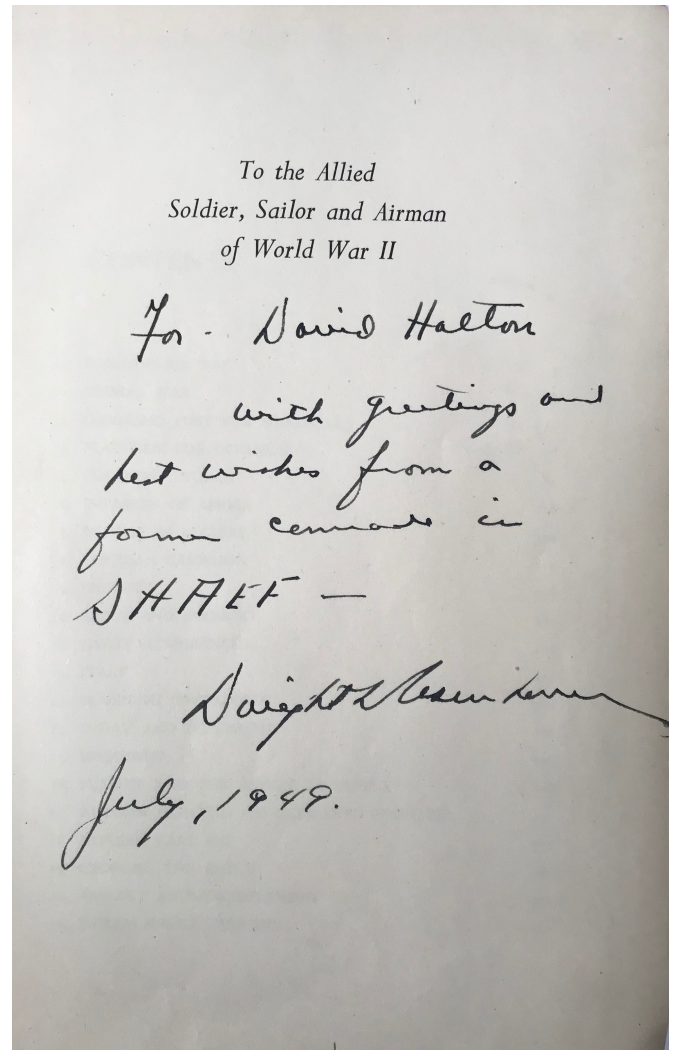 To the Allied
Soldier, Sailor and Airman
of World War II
For - David Halton
with greetings and
best wishes from a
former comrade in
SHAEF —
Dwight D Eisenhower
July, 1949.